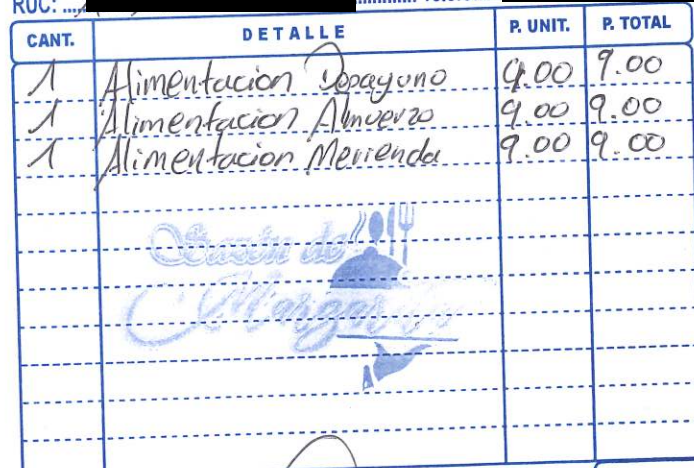 RUC:
CANT. DETALLE P. UNIT. P. TOTAL
1 Alimentacion Desayuno 9.00 9.00
1 Alimentacion Almuerzo 9.00 9.00
1 Alimentacion Merienda 9.00 9.00
Sazón de